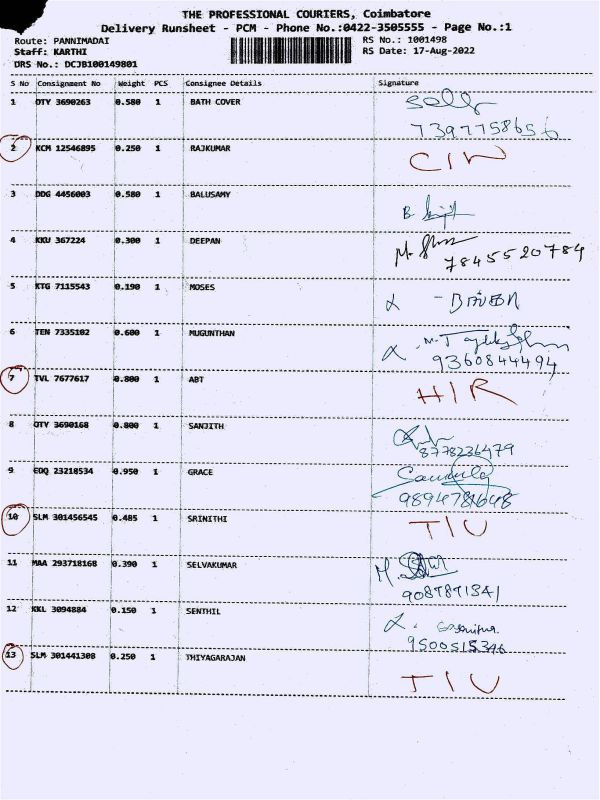 THE PROFESSIONAL COURIERS, Coimbatore
Delivery Runsheet - PCM - Phone No.:0422-3505555 - Page No.:1
Route: PANNIMADAI RS No.: 1001498
Staff: KARTHI RS Date: 17-Aug-2022
DRS No.: DCJB100149801
S No Consignment No Weight PCS Consignee Details Signature
1 OTY 3690263 0.580 1 BATH COVER
7397758656
2 KCM 12546895 0.250 1 RAJKUMAR CIN
3 DDG 4456003 0.580 1 BALUSAMY
B
4 KKU 367224 0.300 1 DEEPAN
7845520784
5 KTG 7115543 0.190 1 MOSES
6 TEN 7335102 0.600 1 MUGUNTHAN
9360844494
7 TVL 7677617 0.800 1 ABT HIR
8 OTY 3690168 0.800 1 SANJITH
8778236479
9 EDQ 23218534 0.950 1 GRACE
10 SLM 301456545 0.485 1 SRINITHI TIU
11 MAA 293718168 0.390 1 SELVAKUMAR
9087871341
12 KKL 3094884 0.150 1 SENTHIL
9500515346
13 SLM 301441308 0.250 1 THIYAGARAJAN
TIU